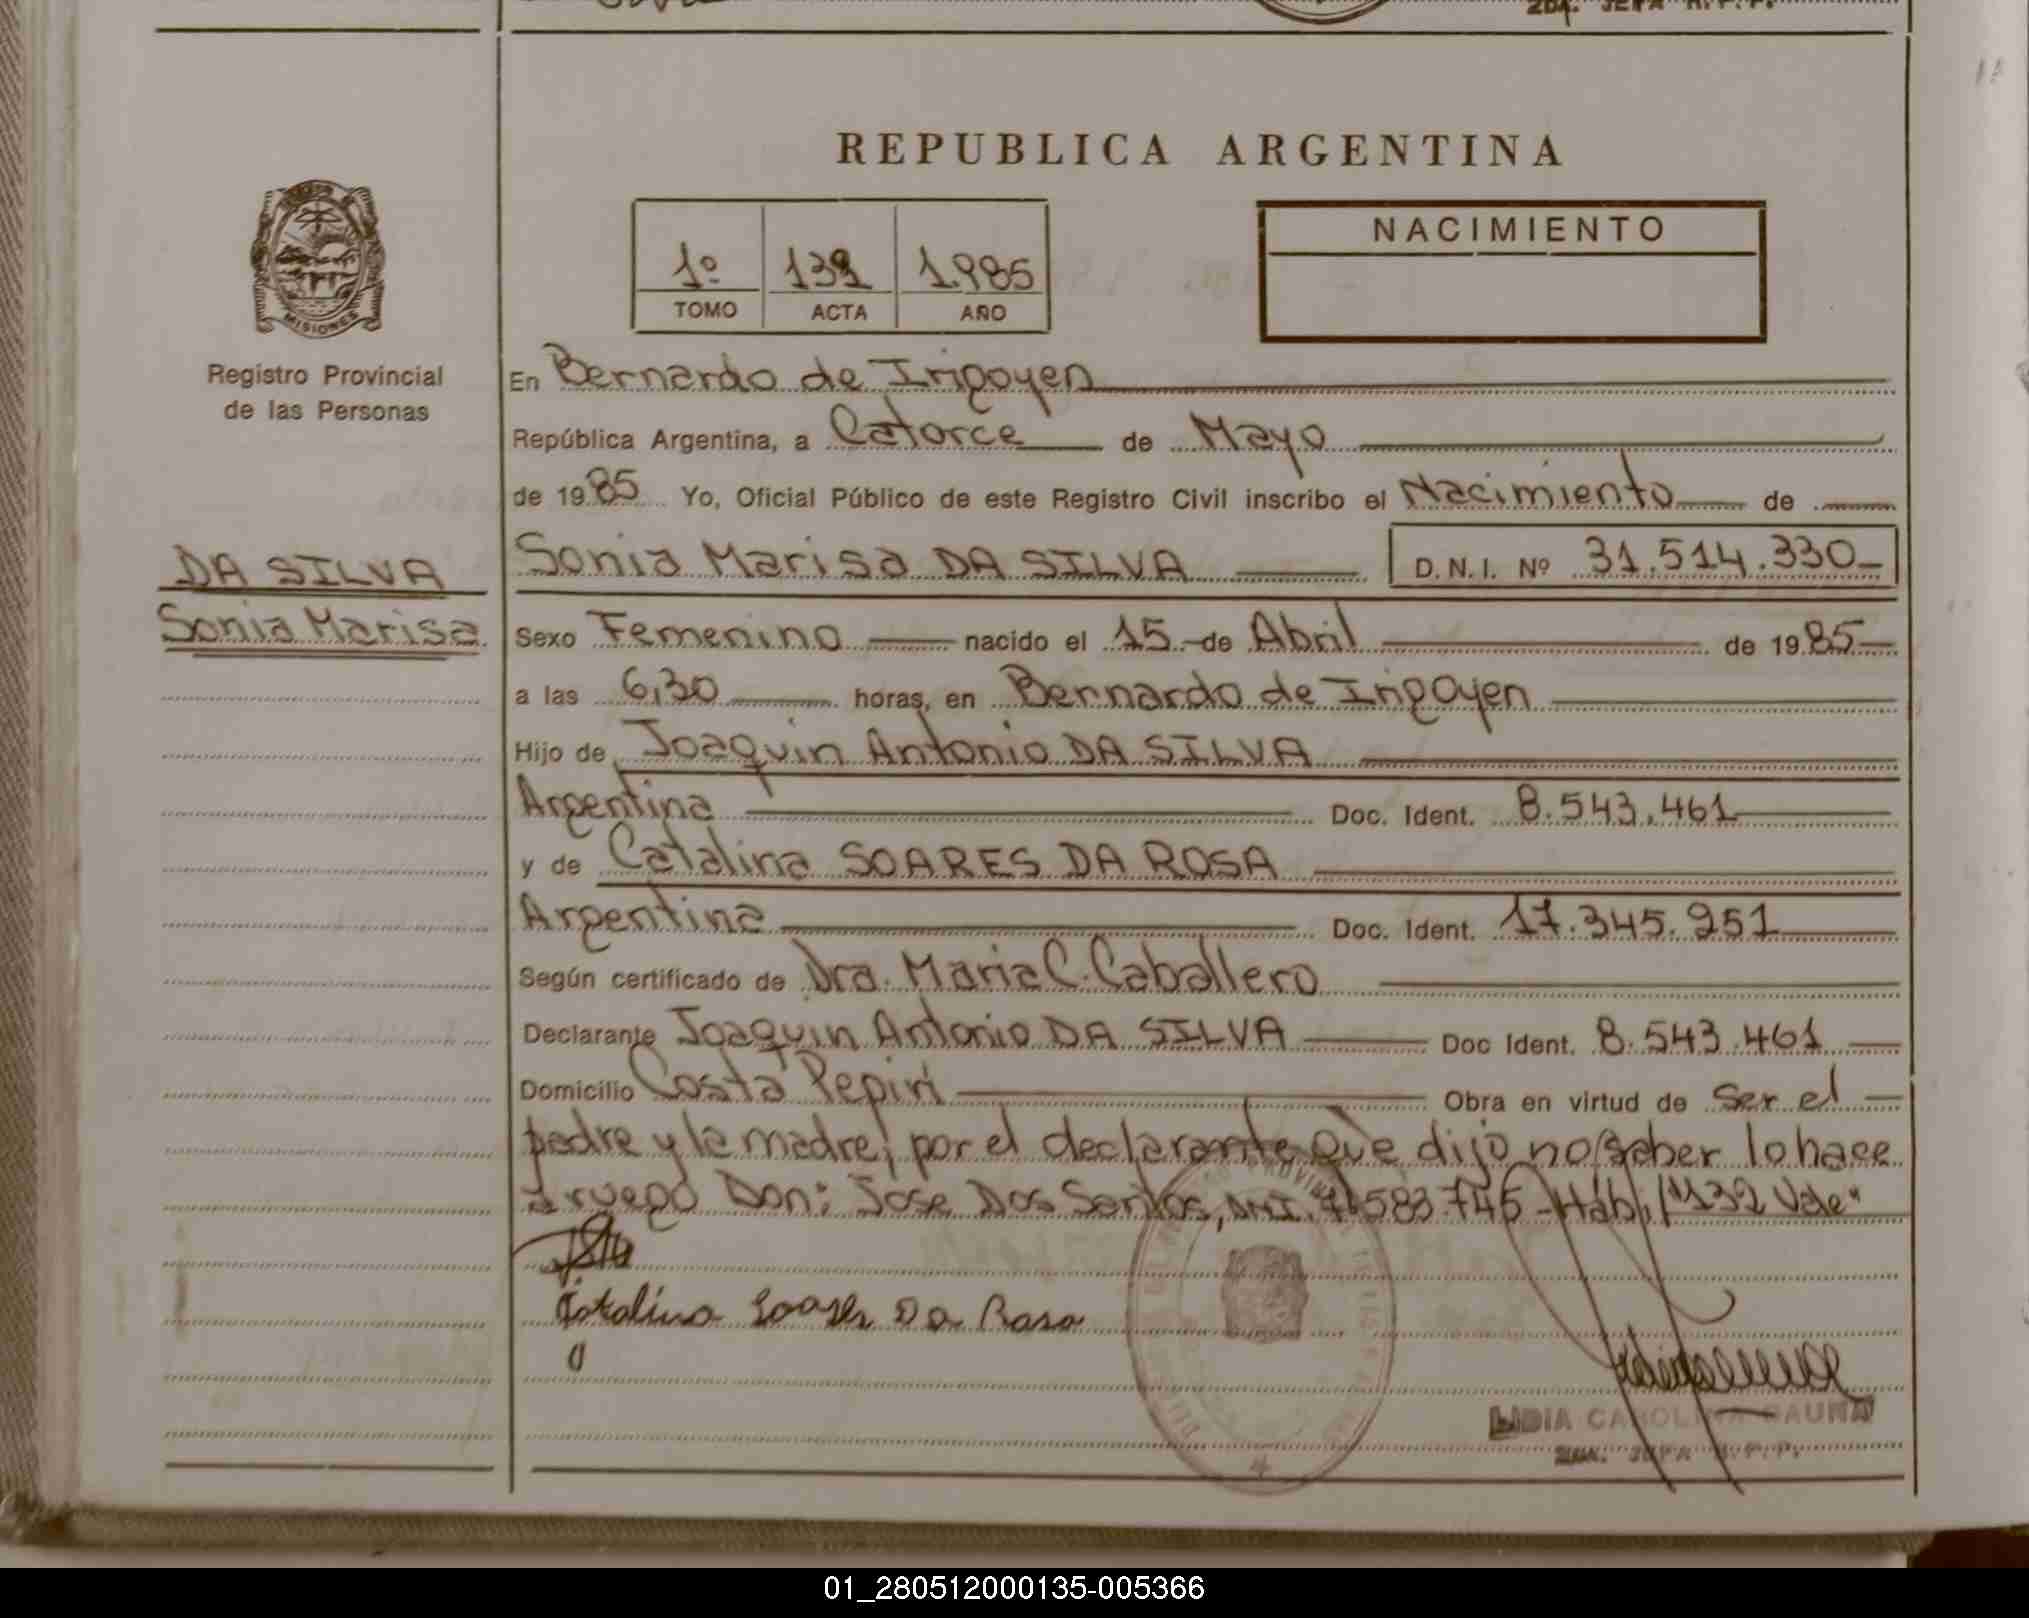 REPUBLICA ARGENTINA
1º 132 1.985
TOMO ACTA AÑO
NACIMIENTO
MISIONES
Registro Provincial
de las Personas
DA SILVA
Sonia Marisa
En Bernardo de Irigoyen
República Argentina, a Catorce de Mayo
de 1985 Yo, Oficial Público de este Registro Civil inscribo el Nacimiento de
Sonia Marisa DA SILVA D.N.I. Nº 31.514.330
Sexo Femenino nacido el 15 de Abril de 1985
a las 6,30 horas, en Bernardo de Irigoyen
Hijo de Joaquin Antonio DA SILVA
Argentina Doc. Ident. 8.543.461
y de Catalina SOARES DA ROSA
Argentina Doc. Ident. 17.345.251
Según certificado de Dra. Maria C. Caballero
Declarante Joaquin Antonio DA SILVA Doc Ident. 8.543.461
Domicilio Costa Pepirí Obra en virtud de Ser el
padre y la madre, por el declarante que dijo no saber lo hace
a ruego Don: Jose Dos Santos, DNI. 583.745 - Hab. "132 Vale"
Catalina Soares Da Rosa
LIDIA CAROLINA
2DA. JEFA R.P.P.
01_280512000135-005366